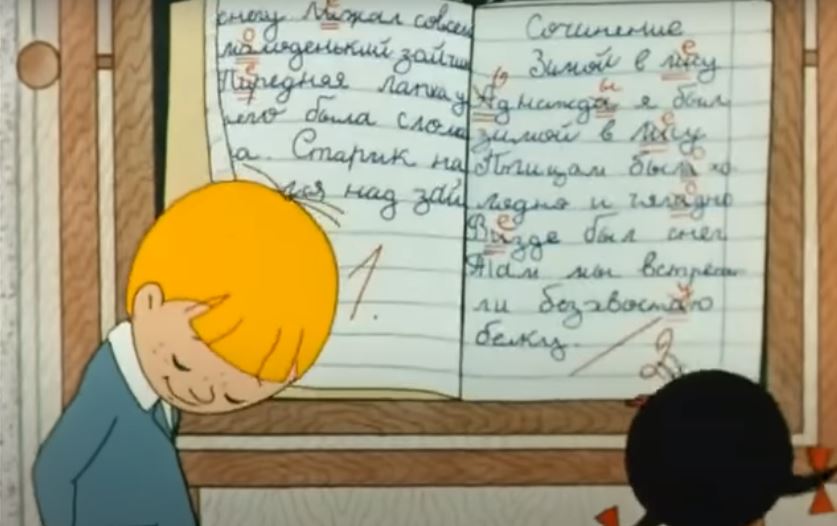 снегу. Лижал совсем
малоденький зайчи
Пиредняя лапка у
него была слома
а. Старик на
лся над зай
1.
Сочинение
Зимой в лису
Аднажда я был
зимой в лису
Птицам была хо
лядна и
Визде был снег
Там мы встрети
ли безхвостаю
белку.
2